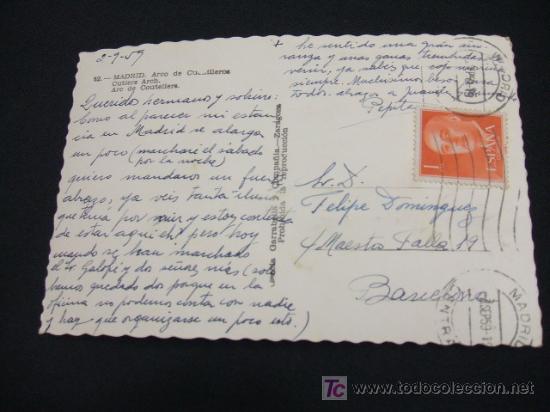 2-9-59
12. — MADRID. Arco de Cuchilleros
Cutlers Arch.
Arc de Coutellers.
Querido hermano y sobrino:
Como al parecer mi estan-
cia en Madrid se alarga
un poco (marcharé el sábado
por la noche)
quiero mandaros un fuerte
abrazo, ya veis tanta ilusión
que tenía por venir y estoy contenta
de estar aquí eh! pero hoy
cuando se han marchado
el Sr Galofé y dos señores más (solo
hemos quedado dos porque en la
oficina no podemos contar con nadie
y hay que organizarse un poco esto.)
+ he sentido una gran año-
ranza y unas ganas tremendas de
venir, ya sabéis que soy
siempre. Muchísimos besos
todos. abrazo a Juan
Pepita
Garrabella y Compañía - Zaragoza
Prohibida la reproducción
1
ESPAÑA
MADRID
Sr. D.
Felipe Dominguez
c/ Maestro Falla 19
Barcelona
MADRID
TC todocoleccion
Art, Antiques, Books, Collectibles
www.todocoleccion.net